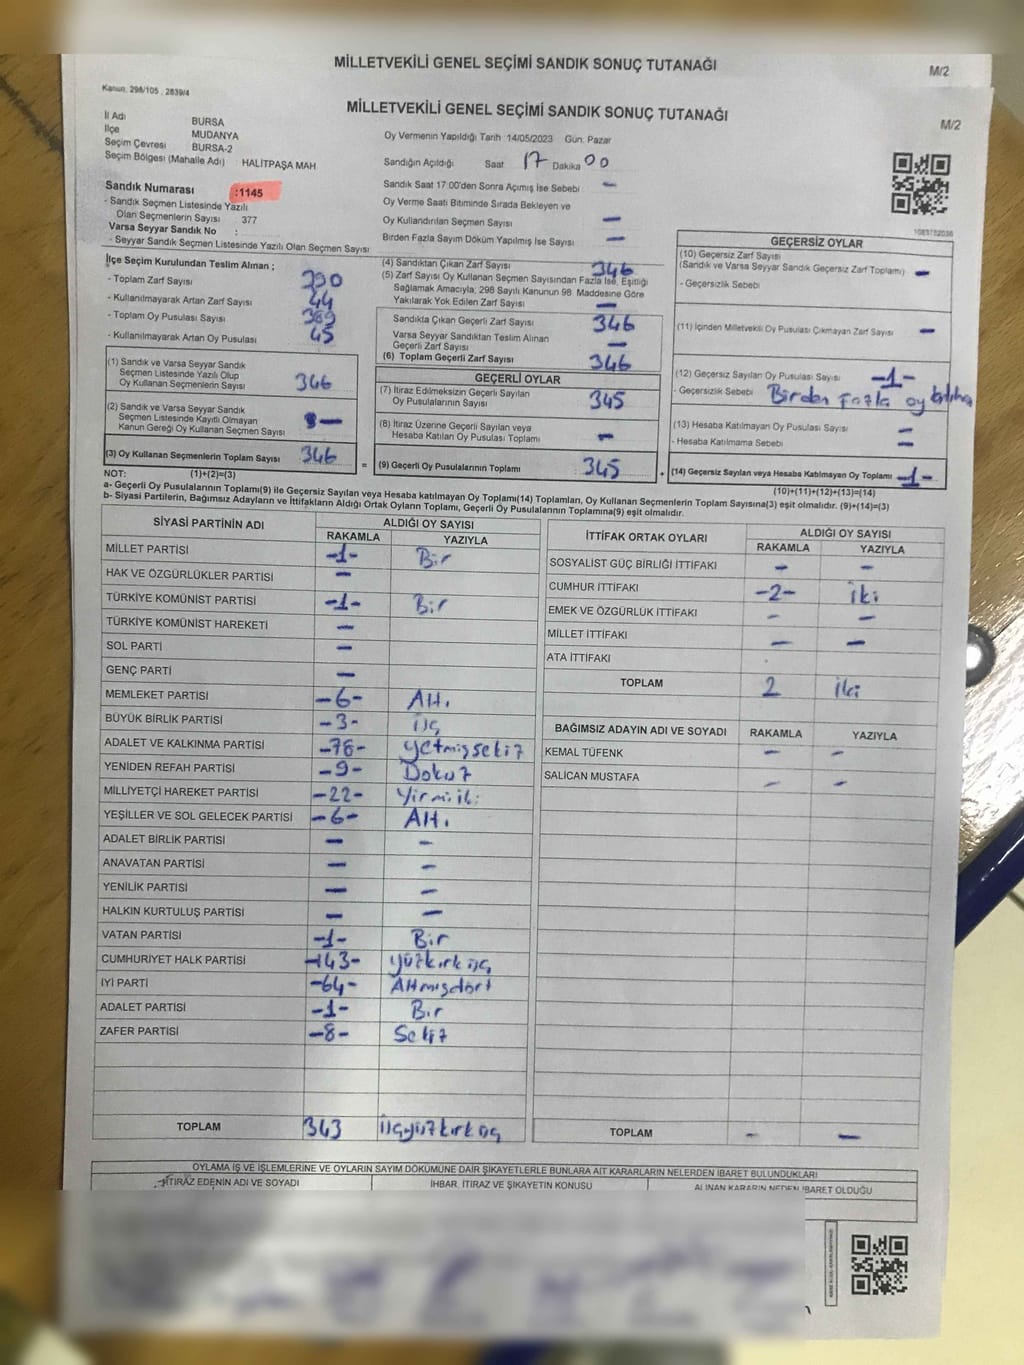 MİLLETVEKİLİ GENEL SEÇİMİ SANDIK SONUÇ TUTANAĞI
M/2
Kanun, 298/105 , 2839/4
MİLLETVEKİLİ GENEL SEÇİMİ SANDIK SONUÇ TUTANAĞI
M/2
İl Adı BURSA
İlçe MUDANYA
Seçim Çevresi BURSA-2
Seçim Bölgesi (Mahalle Adı) : HALİTPAŞA MAH.
Sandık Numarası :1145
- Sandık Seçmen Listesinde Yazılı
Olan Seçmenlerin Sayısı 377
Varsa Seyyar Sandık No :
- Seyyar Sandık Seçmen Listesinde Yazılı Olan Seçmen Sayısı
Oy Vermenin Yapıldığı Tarih :14/05/2023 Gün: Pazar
Sandığın Açıldığı Saat 17 Dakika 00
Sandık Saat 17:00'den Sonra Açılmış İse Sebebi –
Oy Verme Saati Bitiminde Sırada Bekleyen ve
Oy Kullandırılan Seçmen Sayısı –
Birden Fazla Sayım Döküm Yapılmış İse Sayısı –
İlçe Seçim Kurulundan Teslim Alınan ;
- Toplam Zarf Sayısı 390
- Kullanılmayarak Artan Zarf Sayısı 44
- Toplam Oy Pusulası Sayısı
- Kullanılmayarak Artan Oy Pusulası 45
(1) Sandık ve Varsa Seyyar Sandık
Seçmen Listesinde Yazılı Olup
Oy Kullanan Seçmenlerin Sayısı 346
(2) Sandık ve Varsa Seyyar Sandık
Seçmen Listesinde Kayıtlı Olmayan
Kanun Gereği Oy Kullanan Seçmen Sayısı –
(3) Oy Kullanan Seçmenlerin Toplam Sayısı 346
(4) Sandıktan Çıkan Zarf Sayısı 346
(5) Zarf Sayısı Oy Kullanan Seçmen Sayısından Fazla İse, Eşitliği
Sağlamak Amacıyla; 298 Sayılı Kanunun 98. Maddesine Göre
Yakılarak Yok Edilen Zarf Sayısı –
Sandıkta Çıkan Geçerli Zarf Sayısı 346
Varsa Seyyar Sandıktan Teslim Alınan
Geçerli Zarf Sayısı –
(6) Toplam Geçerli Zarf Sayısı 346
GEÇERLİ OYLAR
(7) İtiraz Edilmeksizin Geçerli Sayılan
Oy Pusulalarının Sayısı 345
(8) İtiraz Üzerine Geçerli Sayılan veya
Hesaba Katılan Oy Pusulası Toplamı –
= (9) Geçerli Oy Pusulalarının Toplamı 345
1083782036
GEÇERSİZ OYLAR
(10) Geçersiz Zarf Sayısı
(Sandık ve Varsa Seyyar Sandık Geçersiz Zarf Toplamı) –
- Geçersizlik Sebebi
(11) İçinden Milletvekili Oy Pusulası Çıkmayan Zarf Sayısı –
(12) Geçersiz Sayılan Oy Pusulası Sayısı -1-
- Geçersizlik Sebebi Birden Fazla oy
(13) Hesaba Katılmayan Oy Pusulası Sayısı –
- Hesaba Katılmama Sebebi –
+ (14) Geçersiz Sayılan veya Hesaba Katılmayan Oy Toplamı -1-
NOT: (1)+(2)=(3)
(10)+(11)+(12)+(13)=(14)
a- Geçerli Oy Pusulalarının Toplamı(9) ile Geçersiz Sayılan veya Hesaba katılmayan Oy Toplamı(14) Toplamları, Oy Kullanan Seçmenlerin Toplam Sayısına(3) eşit olmalıdır. (9)+(14)=(3)
b- Siyasi Partilerin, Bağımsız Adayların ve İttifakların Aldığı Ortak Oyların Toplamı, Geçerli Oy Pusulalarının Toplamına(9) eşit olmalıdır.
SİYASİ PARTİNİN ADI ALDIĞI OY SAYISI
RAKAMLA YAZIYLA
MİLLET PARTİSİ -1- Bir
HAK VE ÖZGÜRLÜKLER PARTİSİ –
TÜRKİYE KOMÜNİST PARTİSİ -1- Bir
TÜRKİYE KOMÜNİST HAREKETİ –
SOL PARTİ –
GENÇ PARTİ –
MEMLEKET PARTİSİ -6- Altı
BÜYÜK BİRLİK PARTİSİ -3- üç
ADALET VE KALKINMA PARTİSİ -78- yetmişsekiz
YENİDEN REFAH PARTİSİ -9- Dokuz
MİLLİYETÇİ HAREKET PARTİSİ -22- Yirmiiki
YEŞİLLER VE SOL GELECEK PARTİSİ -6- Altı
ADALET BİRLİK PARTİSİ – –
ANAVATAN PARTİSİ – –
YENİLİK PARTİSİ – –
HALKIN KURTULUŞ PARTİSİ – –
VATAN PARTİSİ -1- Bir
CUMHURİYET HALK PARTİSİ -143- yüzkırküç
İYİ PARTİ -64- Altmışdört
ADALET PARTİSİ -1- Bir
ZAFER PARTİSİ -8- Sekiz
TOPLAM 343 üçyüzkırküç
İTTİFAK ORTAK OYLARI ALDIĞI OY SAYISI
RAKAMLA YAZIYLA
SOSYALİST GÜÇ BİRLİĞİ İTTİFAKI – –
CUMHUR İTTİFAKI -2- iki
EMEK VE ÖZGÜRLÜK İTTİFAKI – –
MİLLET İTTİFAKI – –
ATA İTTİFAKI
TOPLAM 2 iki
BAĞIMSIZ ADAYIN ADI VE SOYADI RAKAMLA YAZIYLA
KEMAL TÜFENK – –
SALİCAN MUSTAFA – –
TOPLAM – –
OYLAMA İŞ VE İŞLEMLERİNE VE OYLARIN SAYIM DÖKÜMÜNE DAİR ŞİKAYETLERLE BUNLARA AİT KARARLARIN NELERDEN İBARET BULUNDUKLARI
İTİRAZ EDENİN ADI VE SOYADI İHBAR, İTİRAZ VE ŞİKAYETİN KONUSU ALINAN KARARIN NEDEN İBARET OLDUĞU